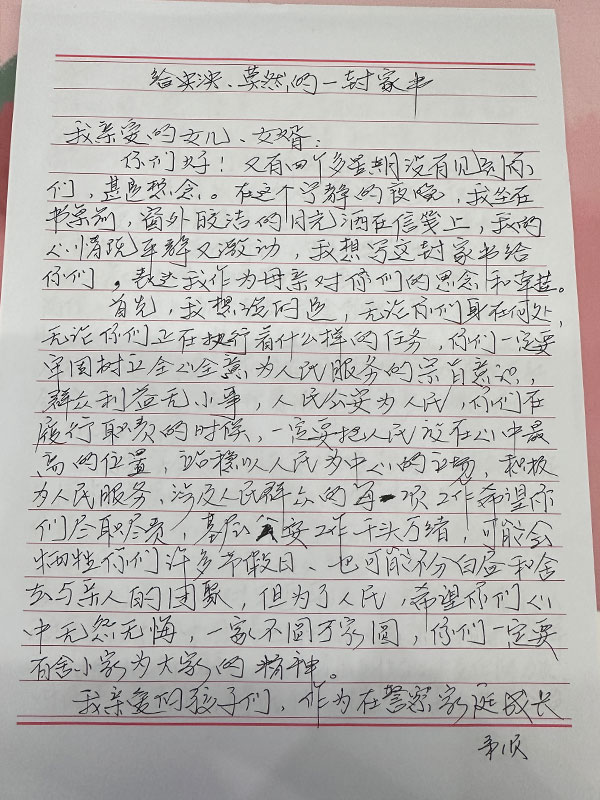 给央泱、莫然的一封家书
我亲爱的女儿、女婿:
你们好!又有四个多星期没有见到你
们,甚是想念。在这个宁静的夜晚,我坐在
书桌前,窗外皎洁的月光洒在信笺上,我的
心情既平静又激动,我想写这封家书给
你们,表达我作为母亲对你们的思念和牵挂。
首先,我想说的是,无论你们身在何处,
无论你们正在执行着什么样的任务,你们一定要
牢固树立全心全意为人民服务的宗旨意识,
群众利益无小事,人民公安为人民,你们在
履行职责的时候,一定要把人民放在心中最
高的位置,站稳以人民为中心的立场,积极
为人民服务,涉及人民群众的每一项工作希望你
们尽职尽责,基层公安工作千头万绪,可能会
牺牲你们许多节假日、也可能不分白昼和舍
去与亲人的团聚,但为了人民,希望你们心
中无怨无悔,一家不圆万家圆,你们一定要
有舍小家为大家的精神。
我亲爱的孩子们,作为在警察家庭成长
第1页